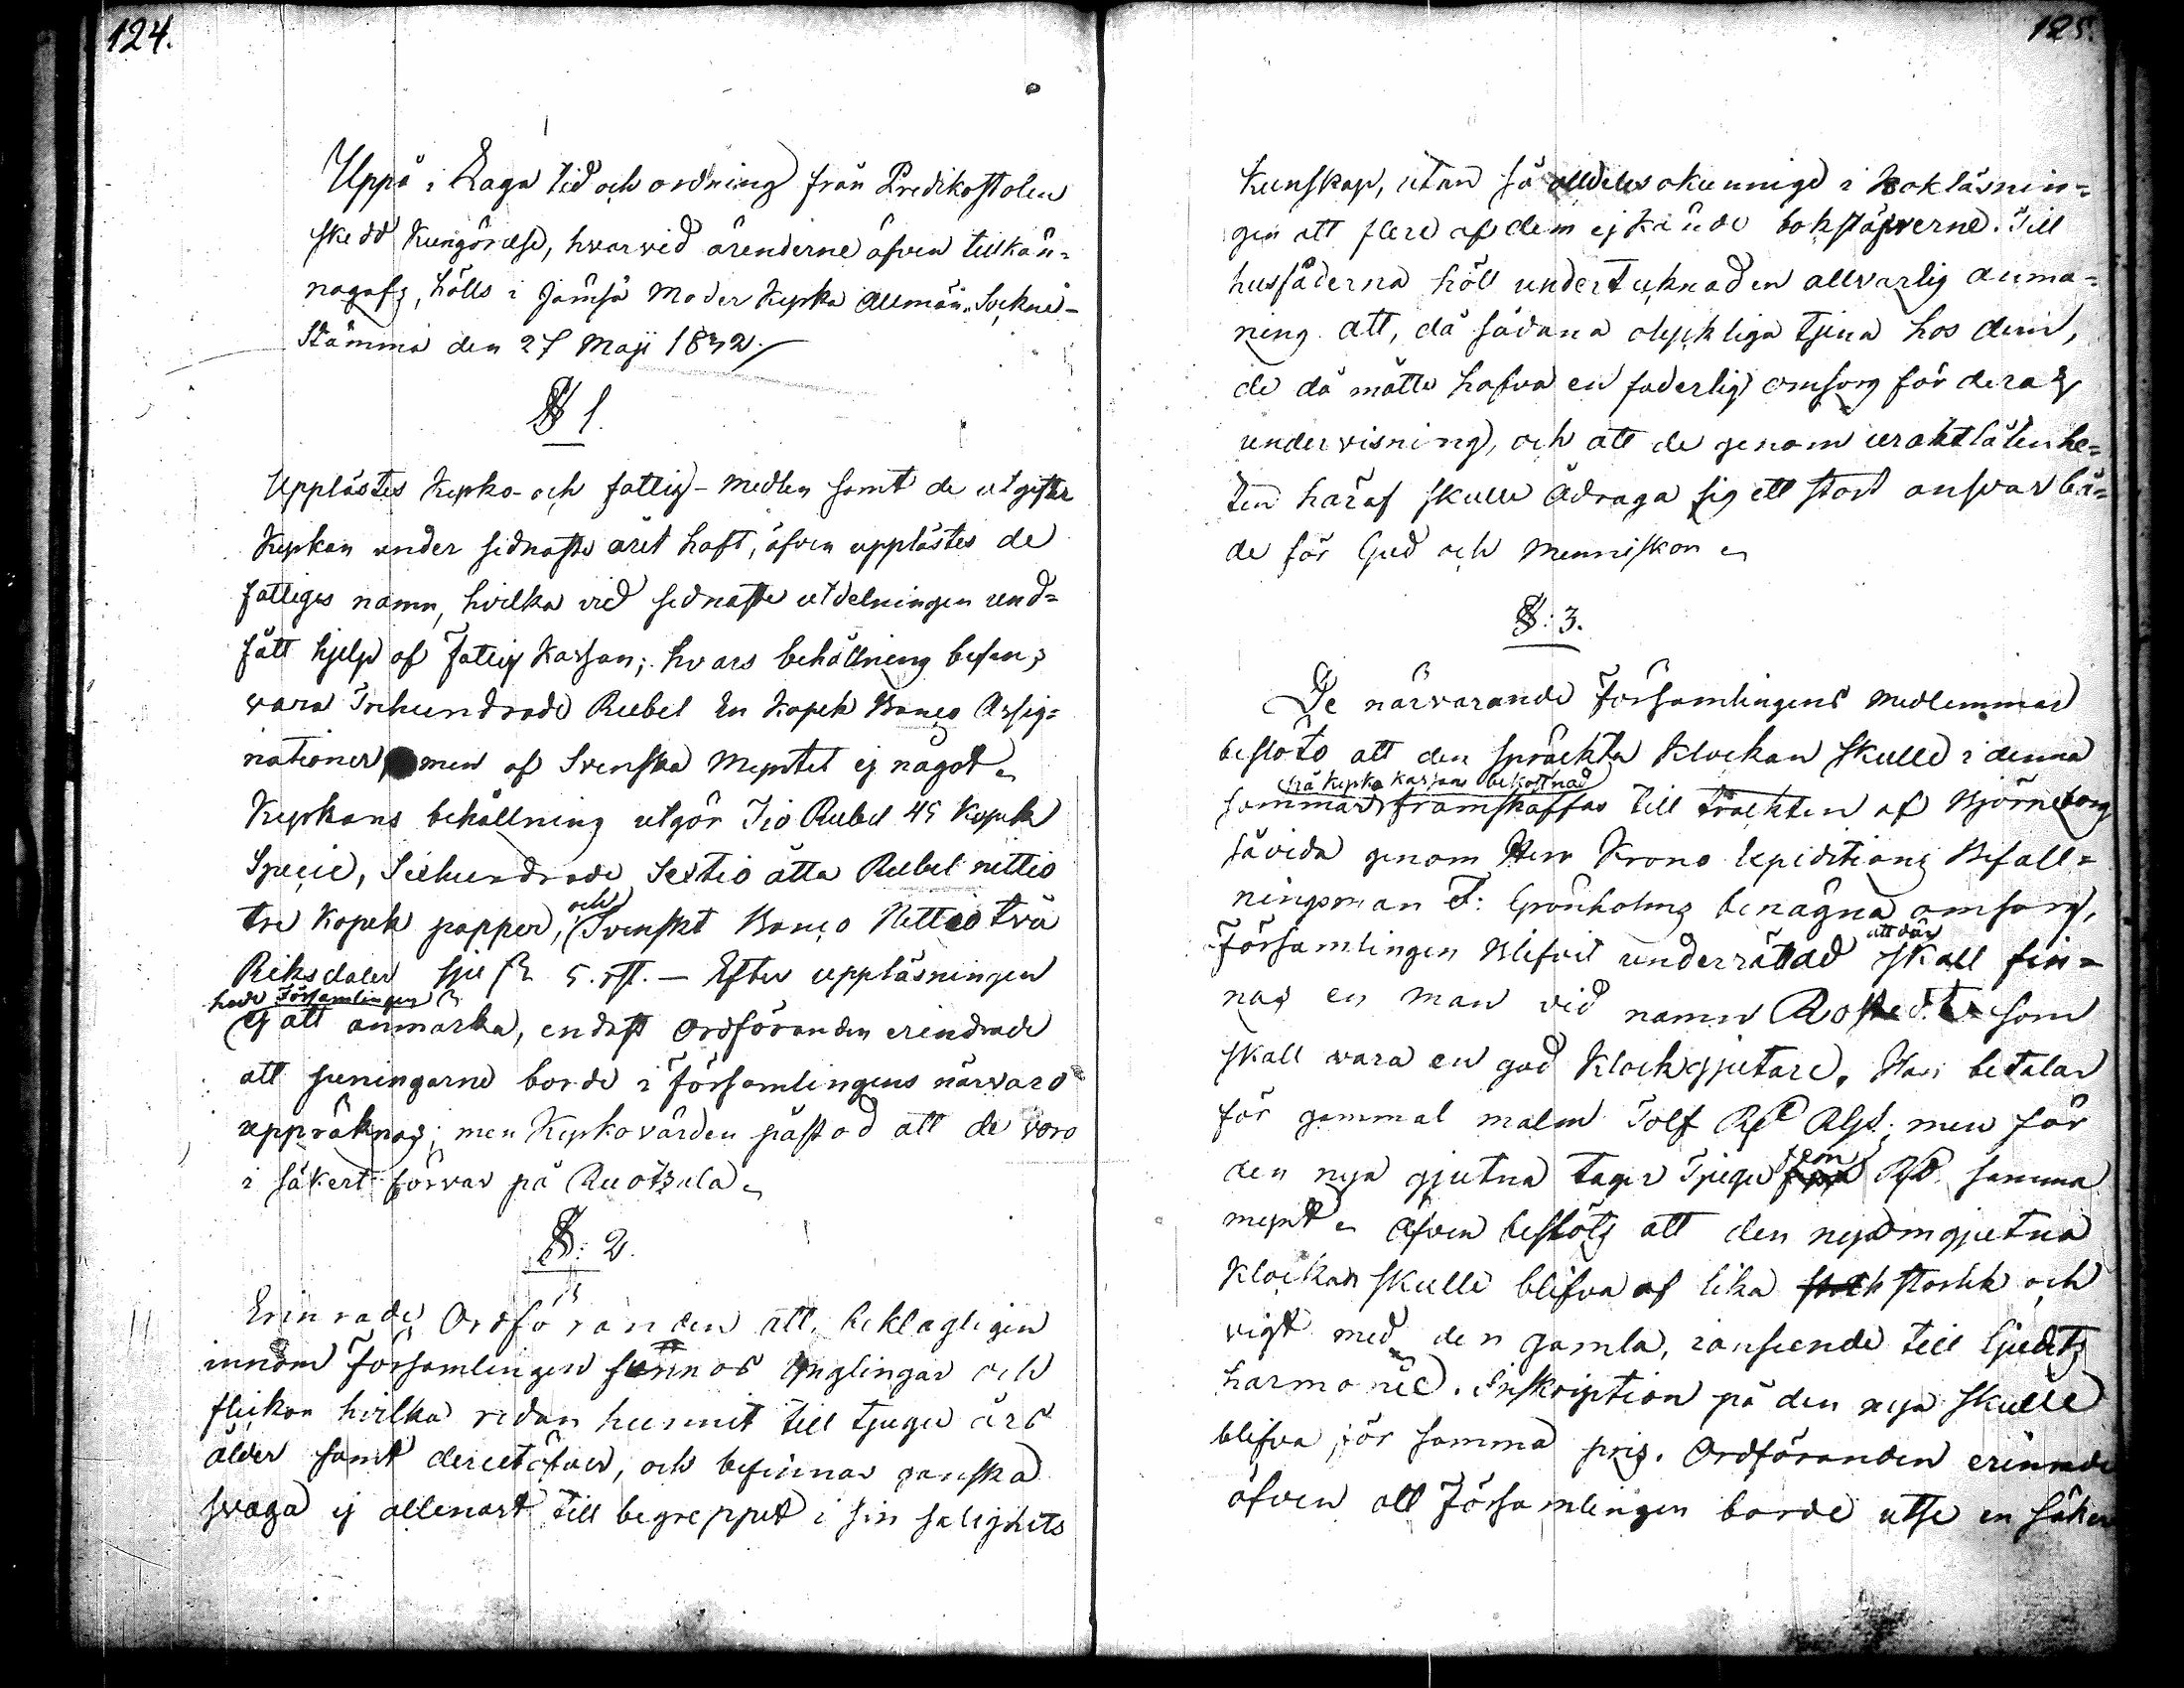 124.
Uppå i Laga tid och ordning från Predikostolen
skedd Kungörelse, hwarvid ärenderne äfven tillkän-
nagafs, hölls i Jämsä Moder Kyrka Allmän Sockne-
Stämma den 27 Maji 1832.
§ 1.
Upplästes Kyrko- och fattig-medlen samt de utgifter
Kyrkan under sednaste året haft, äfven upplästes de
fattiges namn, hvilka vid sednaste utdelningen und-
fått hjelp af Fattig Kassan; hvars behållning befans
vara Trehundrade Rubel En Kopek Banco Assig-
nationer, men af Svenska Myntet ej något.
Kyrkans behållning utgör Tio Rubel 45 Kopek
Specie, Sexhundrade Sextio åtta Rubel nittio
tre Kopek papper, och Svenskt Banco Nittio två
Riksdaler sju ß 5. rst. — Efter uppläsningen
hade Församlingen
ej att anmärka, endast Ordföranden erindrade
att peningarne borde i Församlingens närvaro
uppräknas; men Kyrkovärden påstod att de voro
i säkert förvar på Ruotzula.
§: 2.
Erinrade Ordföranden att beklagligen
innom församlingen finnas Ynglingar och
flickor hvilka redan hunnit till tjugu års
ålder samt derutöfver, och befinnas ganska
svaga ej allenast till begreppet i sin salighets
125.
Kunskap, utan så alldeles okunnige i Bokläsnin-
gen att flere af dem ej kände bokstäfverne. Till
husfäderna höll undertecknad en allvarlig anma-
ning att, då sådana olyckliga tjena hos dem,
de då måtte hafva en faderlig omsorg för deras
undervisning, och att de genom uraktlåtenhe-
ten häraf skulle ådraga sig ett stort ansvar bå-
de för Gud och Menniskor.
§: 3.
De närvarande Församlingens medlemmar
beslöto att den spräckta Klockan skulle i denna
på Kyrko Kassans bekostnad
sommar framskaffas till trackten af Björneborg
såvida genom Herr Krono Expeditions Befall-
ningsman F: Grönholms benägna omsorg,
Församlingen blifvit underrättad att där skall fin-
nas en man vid namn Rostedt som
skall vara en god Klockgjutare. Han betalar
för gammal malm Tolf Rd RGs; men för
den nya gjutna tager Tjugu fem Rd. samma
mynt. Äfven beslöts att den nya omgjutna
Klockan skulle blifva af lika storlek och
vigt med den gamla, i anseende till ljudets
harmonie. Inskription på den nya skulle
blifva för samma pris. Ordföranden erinrade
äfven att Församlingen borde utse en säker